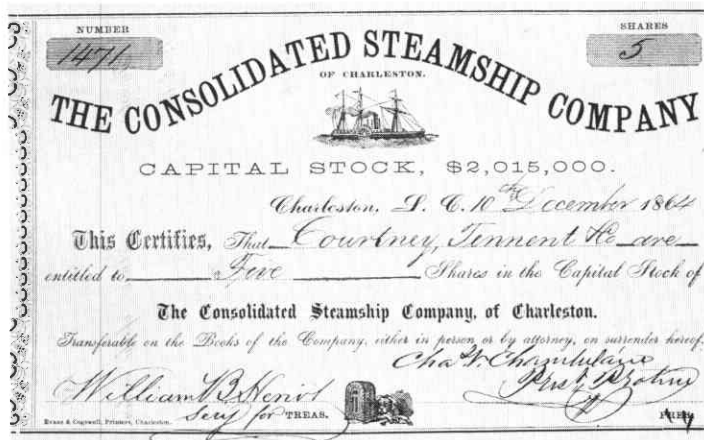 NUMBER
1471
SHARES
5
THE CONSOLIDATED STEAMSHIP COMPANY
OF CHARLESTON.
CAPITAL STOCK, $2,015,000.
Charleston, S. C. 10th December 1864
This Certifies, That Courtney, Tennent & Co are
entitled to Five Shares in the Capital Stock of
The Consolidated Steamship Company, of Charleston.
Transferable on the Books of the Company, either in person or by attorney, on surrender hereof.
Cha V. Chamberlain
William B Heriot
Prest Protem
Secy for TREAS.
PRES.
Evans & Cogswell, Printers, Charleston.